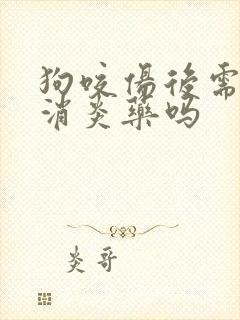 狗咬傷後需
消炎藥吗
炎哥